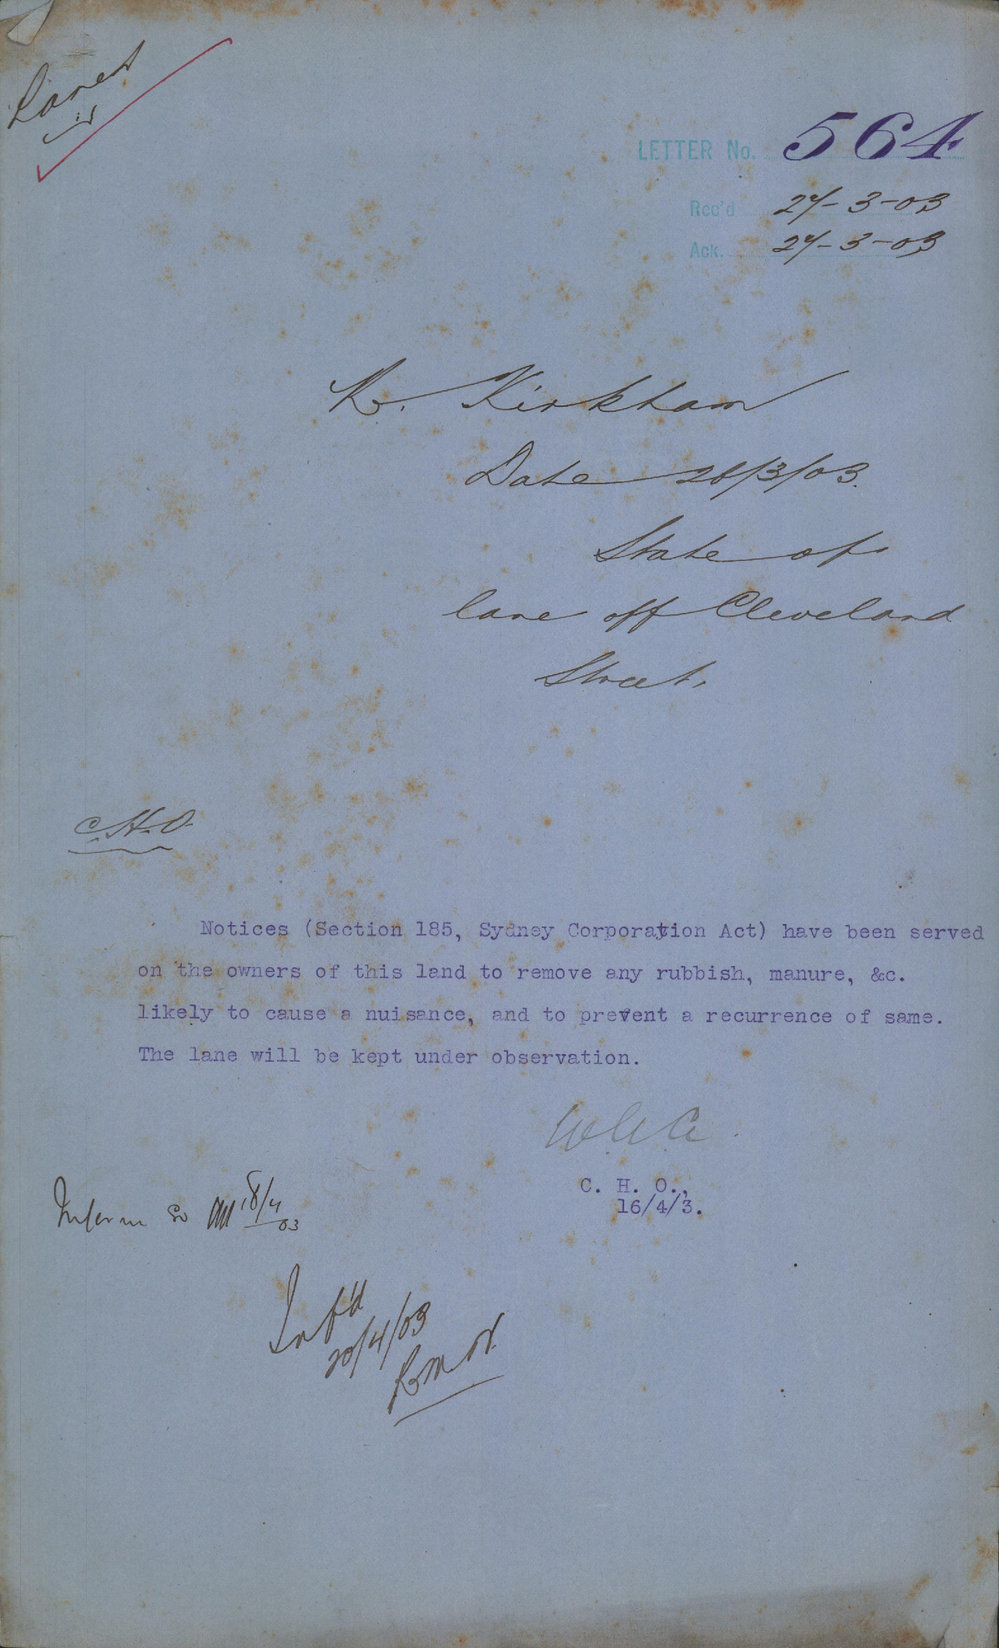 Lanes
LETTER No. 564
Rec'd 27-3-03
Ack. 27-3-03
Kirkham
Date 26/3/03.
State of
lane off Cleveland
Street.
C.H.O.
Notices (Section 185, Sydney Corporation Act) have been served
on the owners of this land to remove any rubbish, manure, &c.
likely to cause a nuisance, and to prevent a recurrence of same.
The lane will be kept under observation.
C. H. O.,
16/4/3.
Inform so 18/4/03
Inf'd
20/4/03